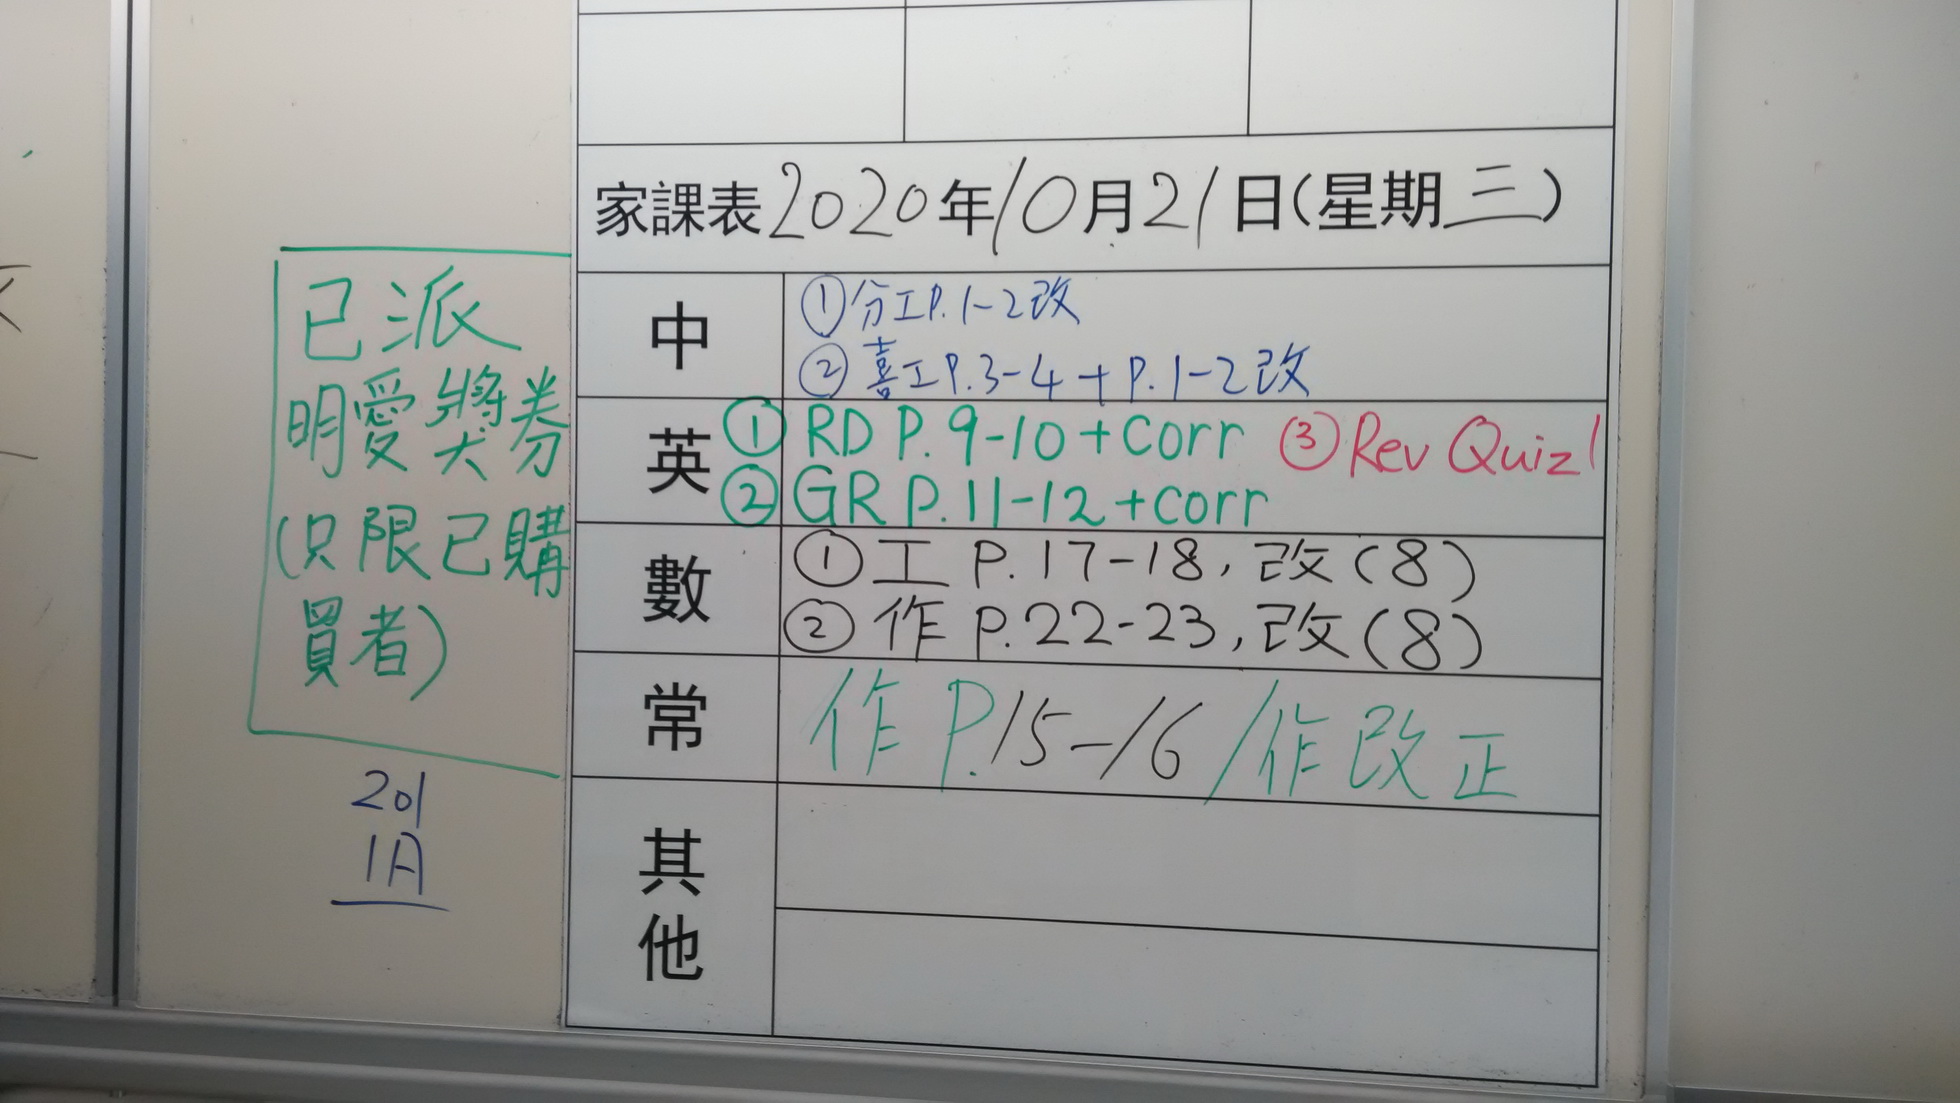 家課表2020年10月21日(星期三)
中
①分工P.1-2改
②喜工P.3-4+P.1-2改
英
①RD P.9-10+corr ③Rev Quiz1
②GR P.11-12+corr
數
①工 P.17-18,改(8)
②作 P.22-23,改(8)
常
作 P.15-16/作改正
其
他
已派
明愛獎券
(只限已購
買者)
201
1A